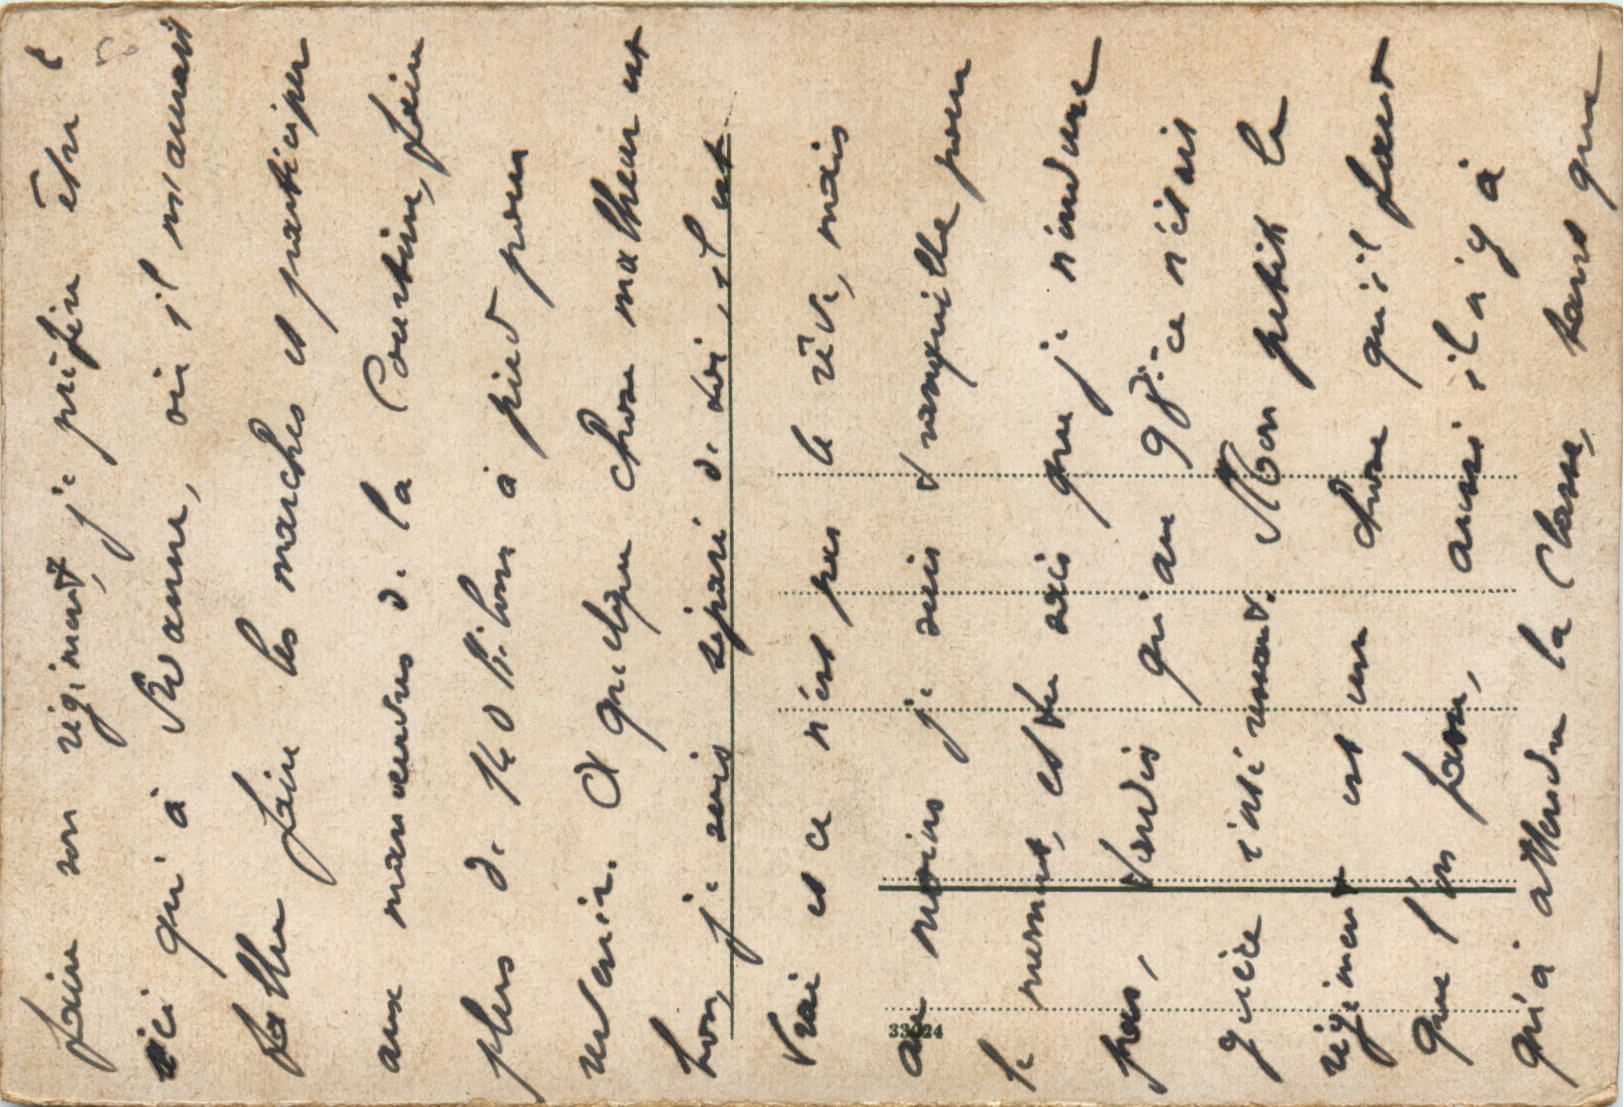 faire son régiment, je préfère être
ici qu'à Roanne, où il m'aurait
fallu faire les marches et participer
aux manœuvres de la Courtine, faire
plus de 140 kilom à pied pour
revenir. A quelque chose malheur est
bon, je suis séparé de toi, il est
vrai et ce n'est pas le rêve, mais
au moins je suis tranquille pour
le moment, et tu sais que je n'endure
pas, tandis qu'au 98e ce n'était
guère intéressant. Mon petit le
régiment est une chose qu'il faut
que l'on fasse, aussi il n'y a
qu'à attendre la classe, sans que
33024